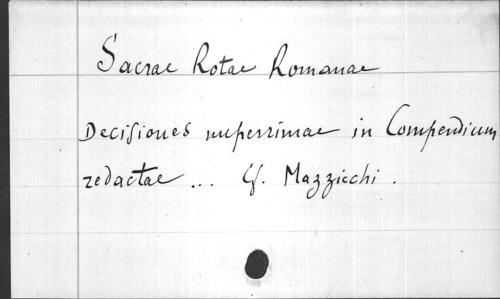 Sacrae Rotae Romanae
Decisiones nuperrimae in Compendium
redactae ... Cf. Mazzicchi.